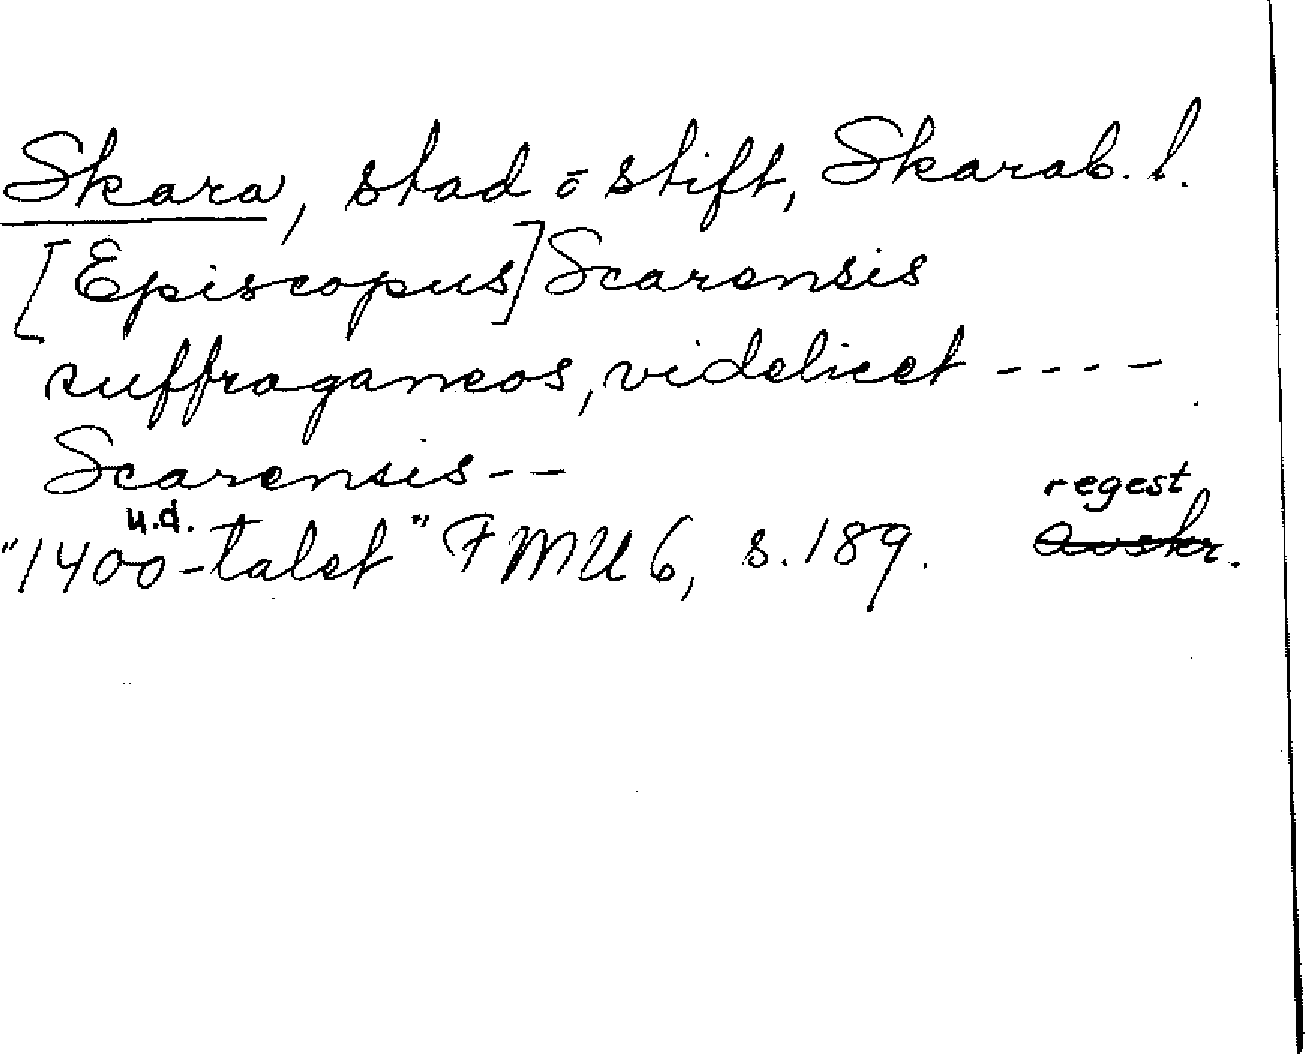 Skara, stad o stift, Skarab. l.
[Episcopus] Scarensis
suffraganeos, videlicet ----
Scarensis --
u.d. regest
"1400-talet" FMU 6, s. 189. avskr.